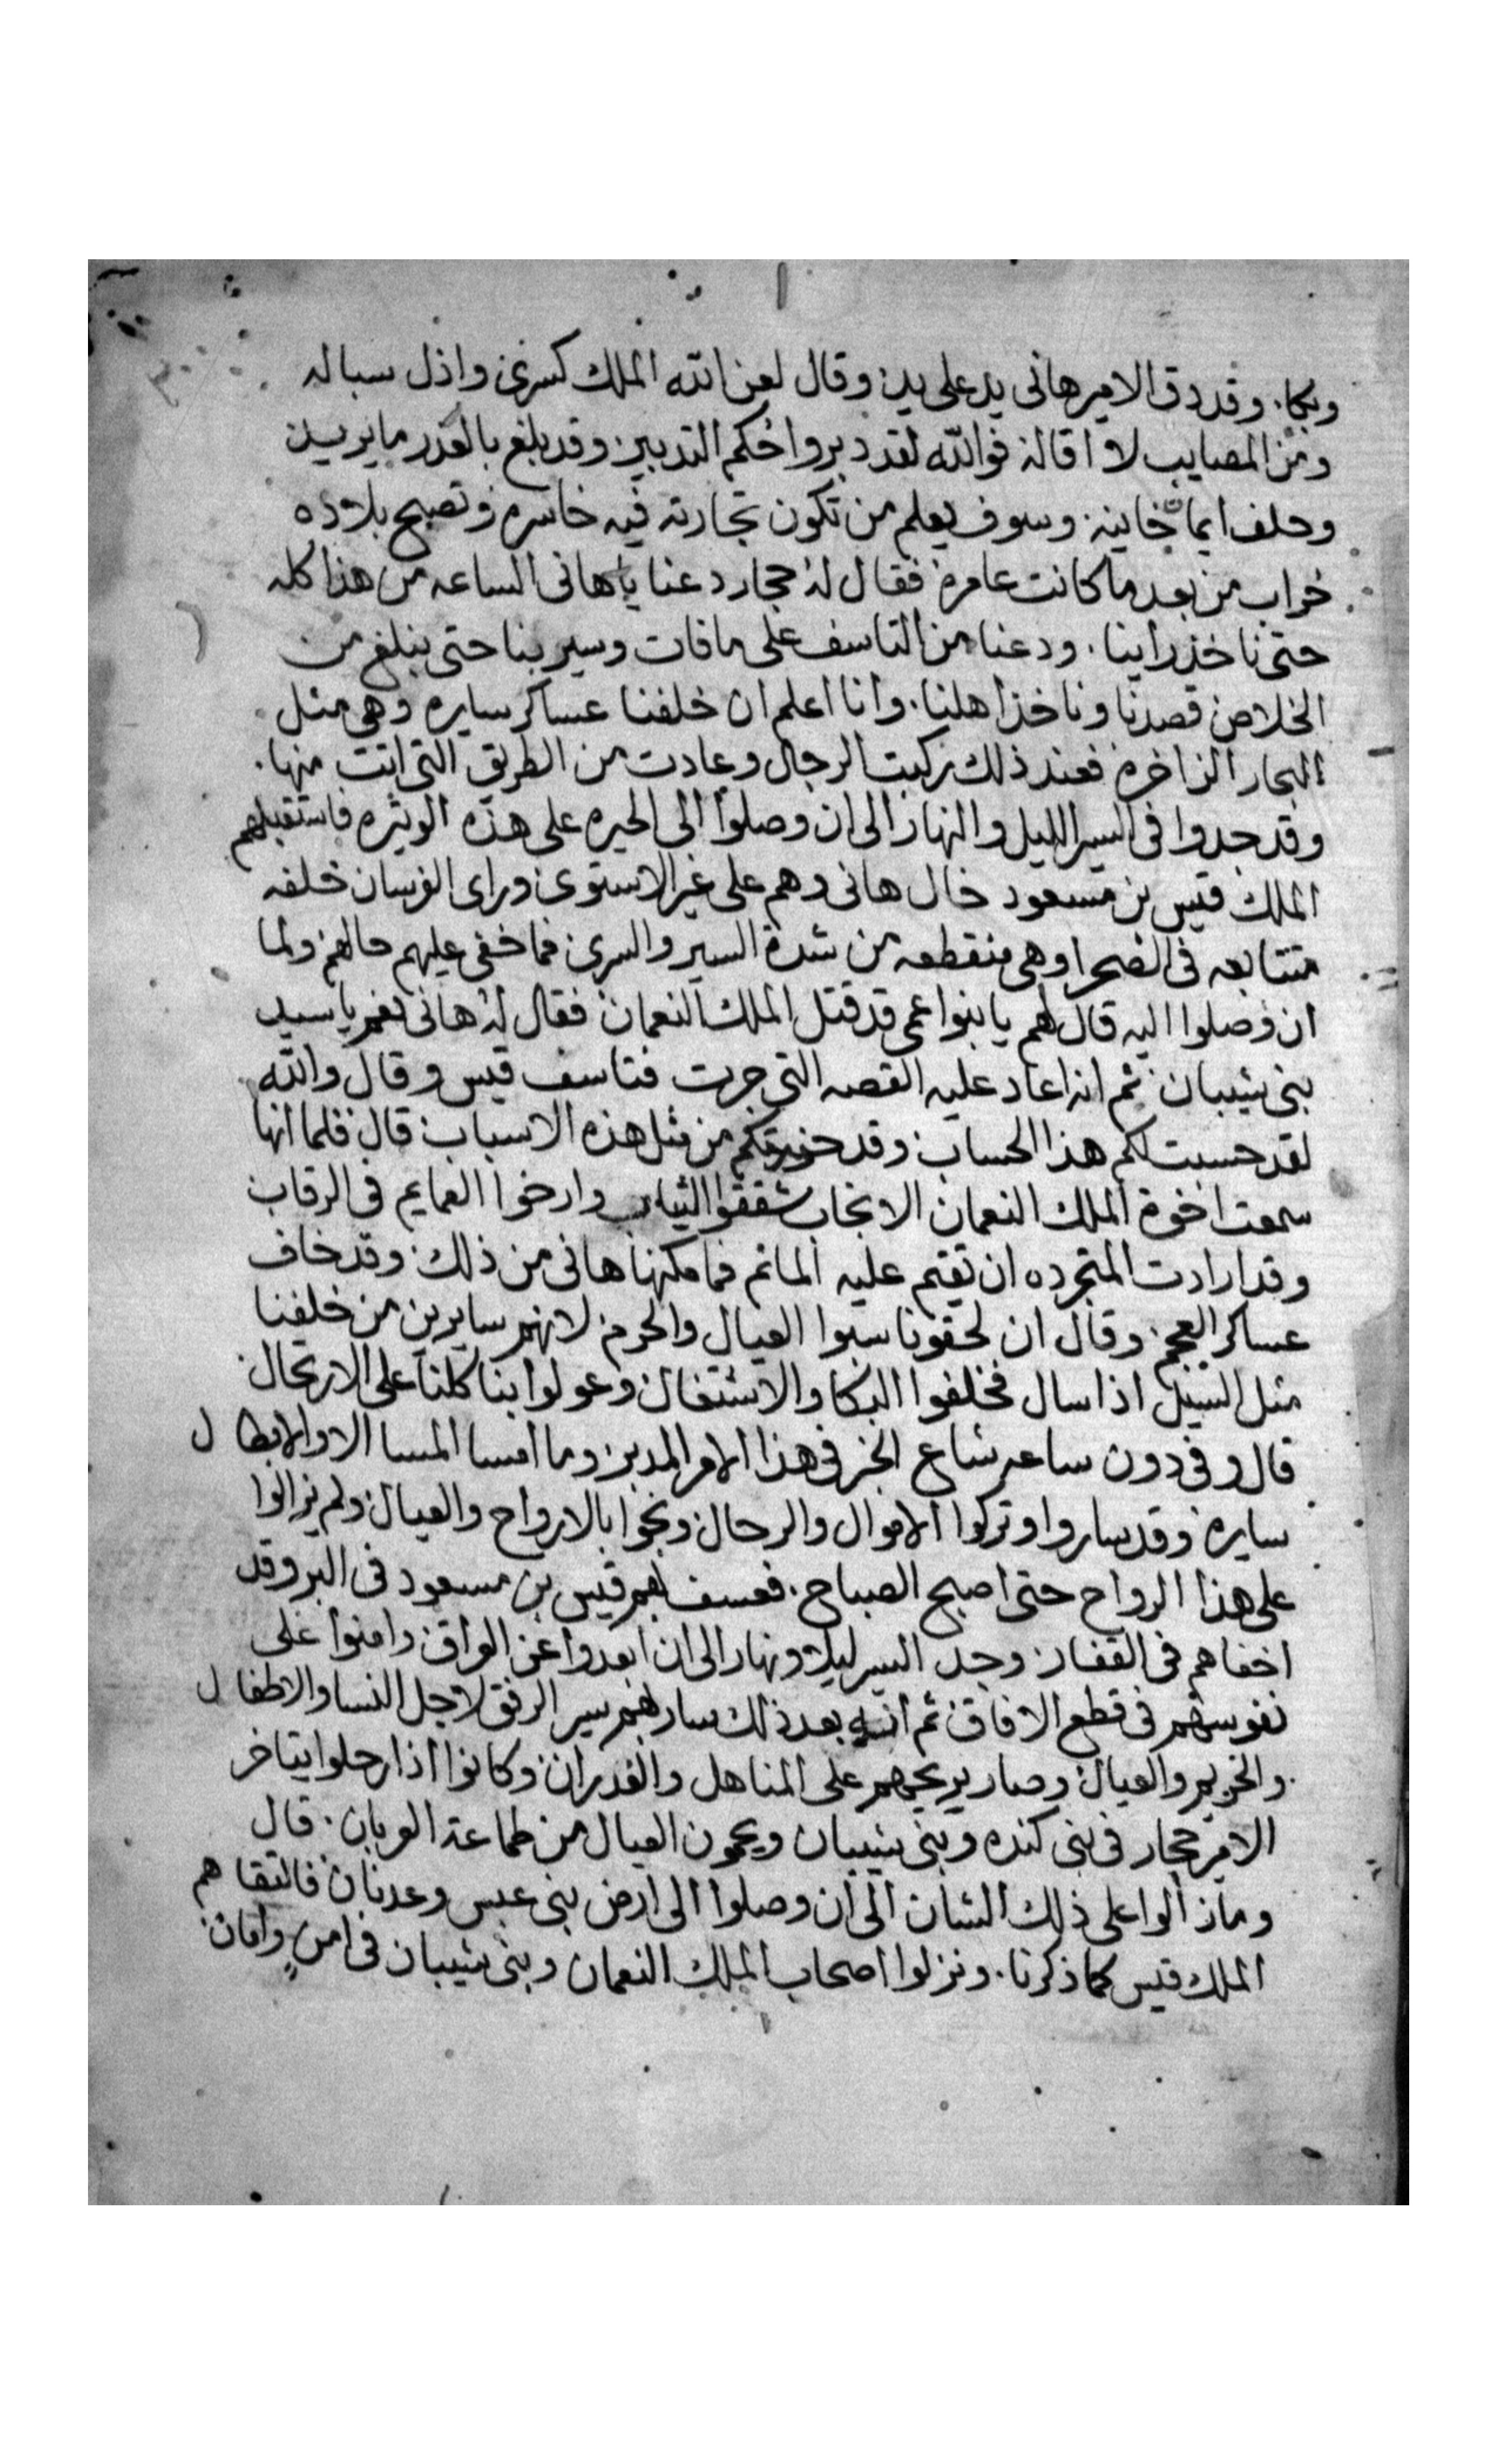 وبكا. وقد دق الامير هانى يد على يد وقال لعن الله الملك كسرى واذل سباله
ومن المصايب لا اقاله فوالله لقد دبر واحكم التدبير وقد بلغ بالغدر ما يريد
وحلف ايمانا خاينه وسوف يعلم من تكون تجارته فيه خاسره وتصبح بلاده
خراب من بعد ما كانت عامره فقال له حجار دعنا يا هانى الساعه من هذا كله
حتى ناخذ راينا. ودعنا من التاسف على ما فات وسير بنا حتى نبلغ من
الخلاص قصدنا وناخذ اهلنا. وانا اعلم ان خلفنا عساكر سايره وهى مثل
البحار الزاخره فعند ذلك ركبت الرجال وعادت من الطريق التى اتت منها.
وقد جدوا فى السير الليل والنهار الى ان وصلوا الى الحيره على هذه الوتيره فاستقبلهم
الملك قيس بن مسعود خال هانى وهم على غير الاستوى وراى الفرسان خلفه
متتابعه فى الصحرا وهى منقطعه من شدة السير والسرى فما خفى عليهم حالهم ولما
ان وصلوا اليه قال لهم يا بنوا عمى قد قتل الملك النعمان فقال له هانى نعم يا سيد
بنى شيبان ثم انه اعاد عليه القصه التى جرت فتاسف قيس وقال والله
لقد حسبت لكم هذا الحساب وقد حذرتكم من مثل هذه الاسباب قال فلما انها
سمعت اخوة الملك النعمان الانجاب شققوا الثياب وارخوا العمايم فى الرقاب
وقد ارادت المتجرده ان تقيم عليه الماتم فما مكنها هانى من ذلك وقد خاف
عساكر العجم وقال ان لحقونا سبوا العيال والحرم لانهم سايرين من خلفنا
مثل السيل اذا سال فخلفوا البكا والاشتغال وعولوا بنا كلنا على الارتحال
قال وفى دون ساعه شاع الخبر فى هذا الامر المدبر وما امسا المسا الا والابطال
سايره وقد ساروا وتركوا الاموال والرحال ونجوا بالارواح والعيال ولم يزالوا
على هذا الرواح حتى اصبح الصباح. فعسف بهم قيس بن مسعود فى البر وقد
اخفاهم فى القفار وجد السير ليلا ونهار الى ان ابعدوا عن العراق وامنوا على
نفوسهم فى قطع الافاق ثم انه بعد ذلك سار بهم سير الرفق لاجل النسا والاطفال
والحريم والعيال وصار يريحهم على المناهل والغدران وكانوا اذا رحلوا يتاخر
الامير حجار فى بنى كنده وبنى شيبان ويحمون العيال من طماعة العربان. قال
وما زالوا على ذلك الشان الى ان وصلوا الى ارض بنى عبس وعدنان فالتقاهم
الملك قيس كما ذكرنا. ونزلوا اصحاب الملك النعمان وبنى شيبان فى امن وامان